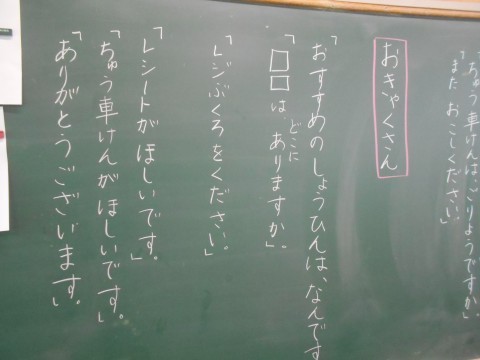 「ちゅう車けんは、ごりようですか」
「また おこしください」
おきゃくさん
「おすすめのしょうひんは、なんです
「□□は どこに ありますか」
「レジぶくろをください。」
「レシートがほしいです。」
「ちゅう車けんがほしいです。」
「ありがとうございます。」